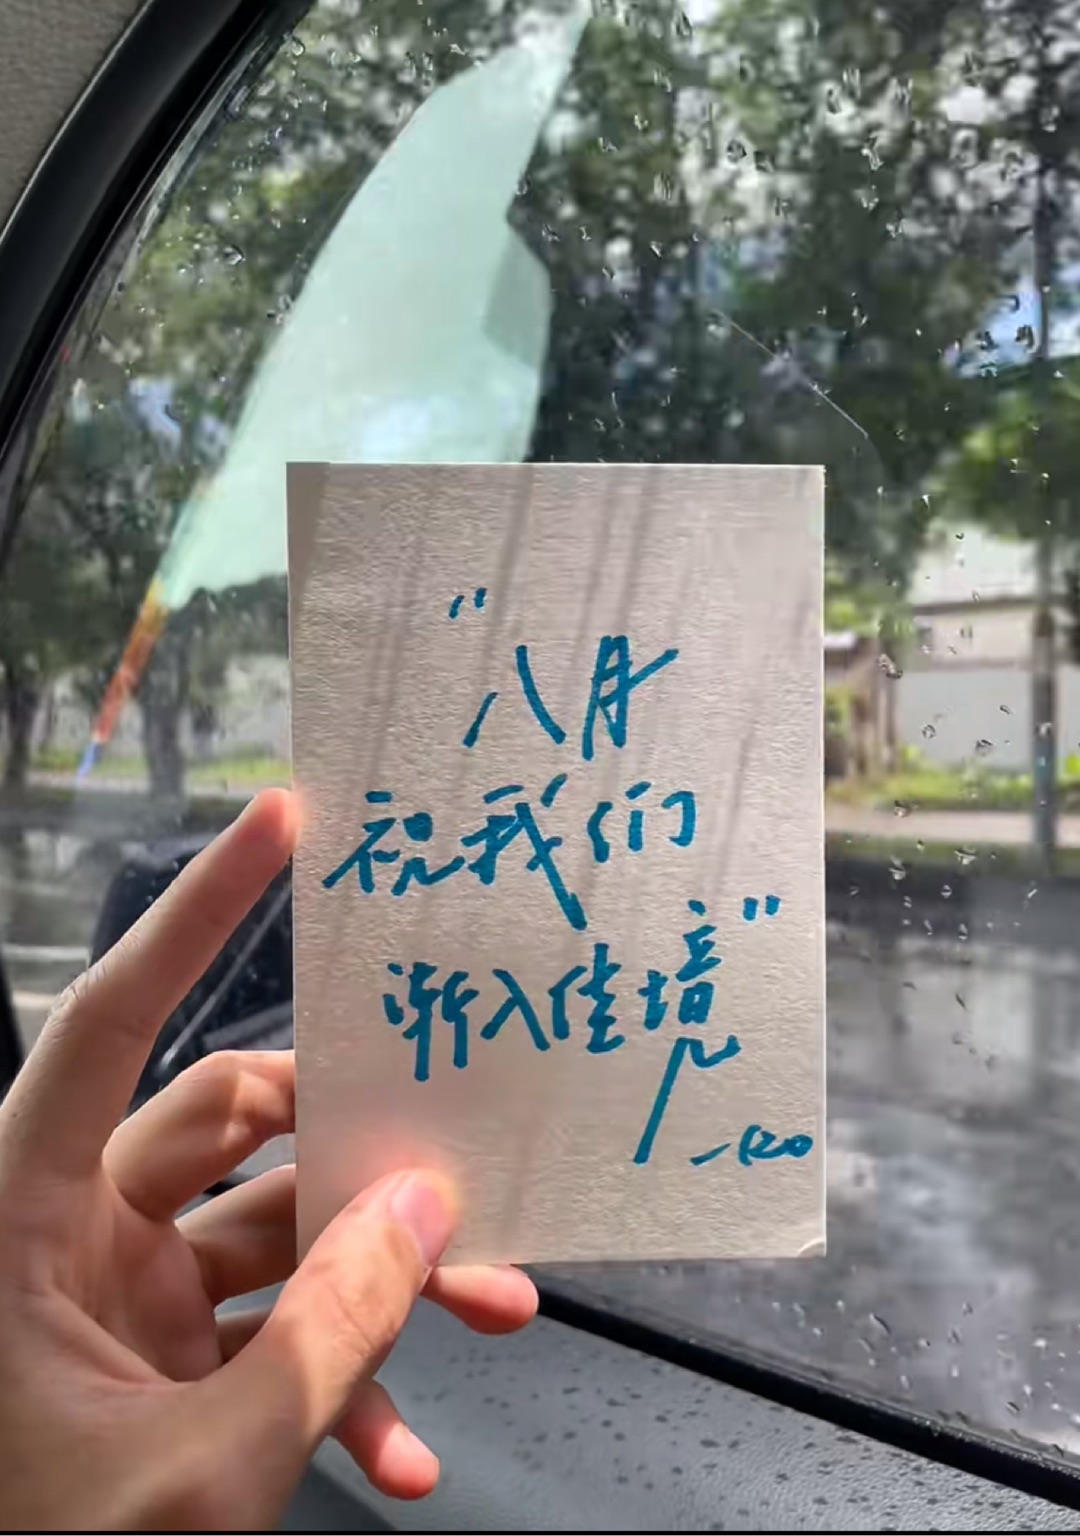 "八月
祝我们
渐入佳境"